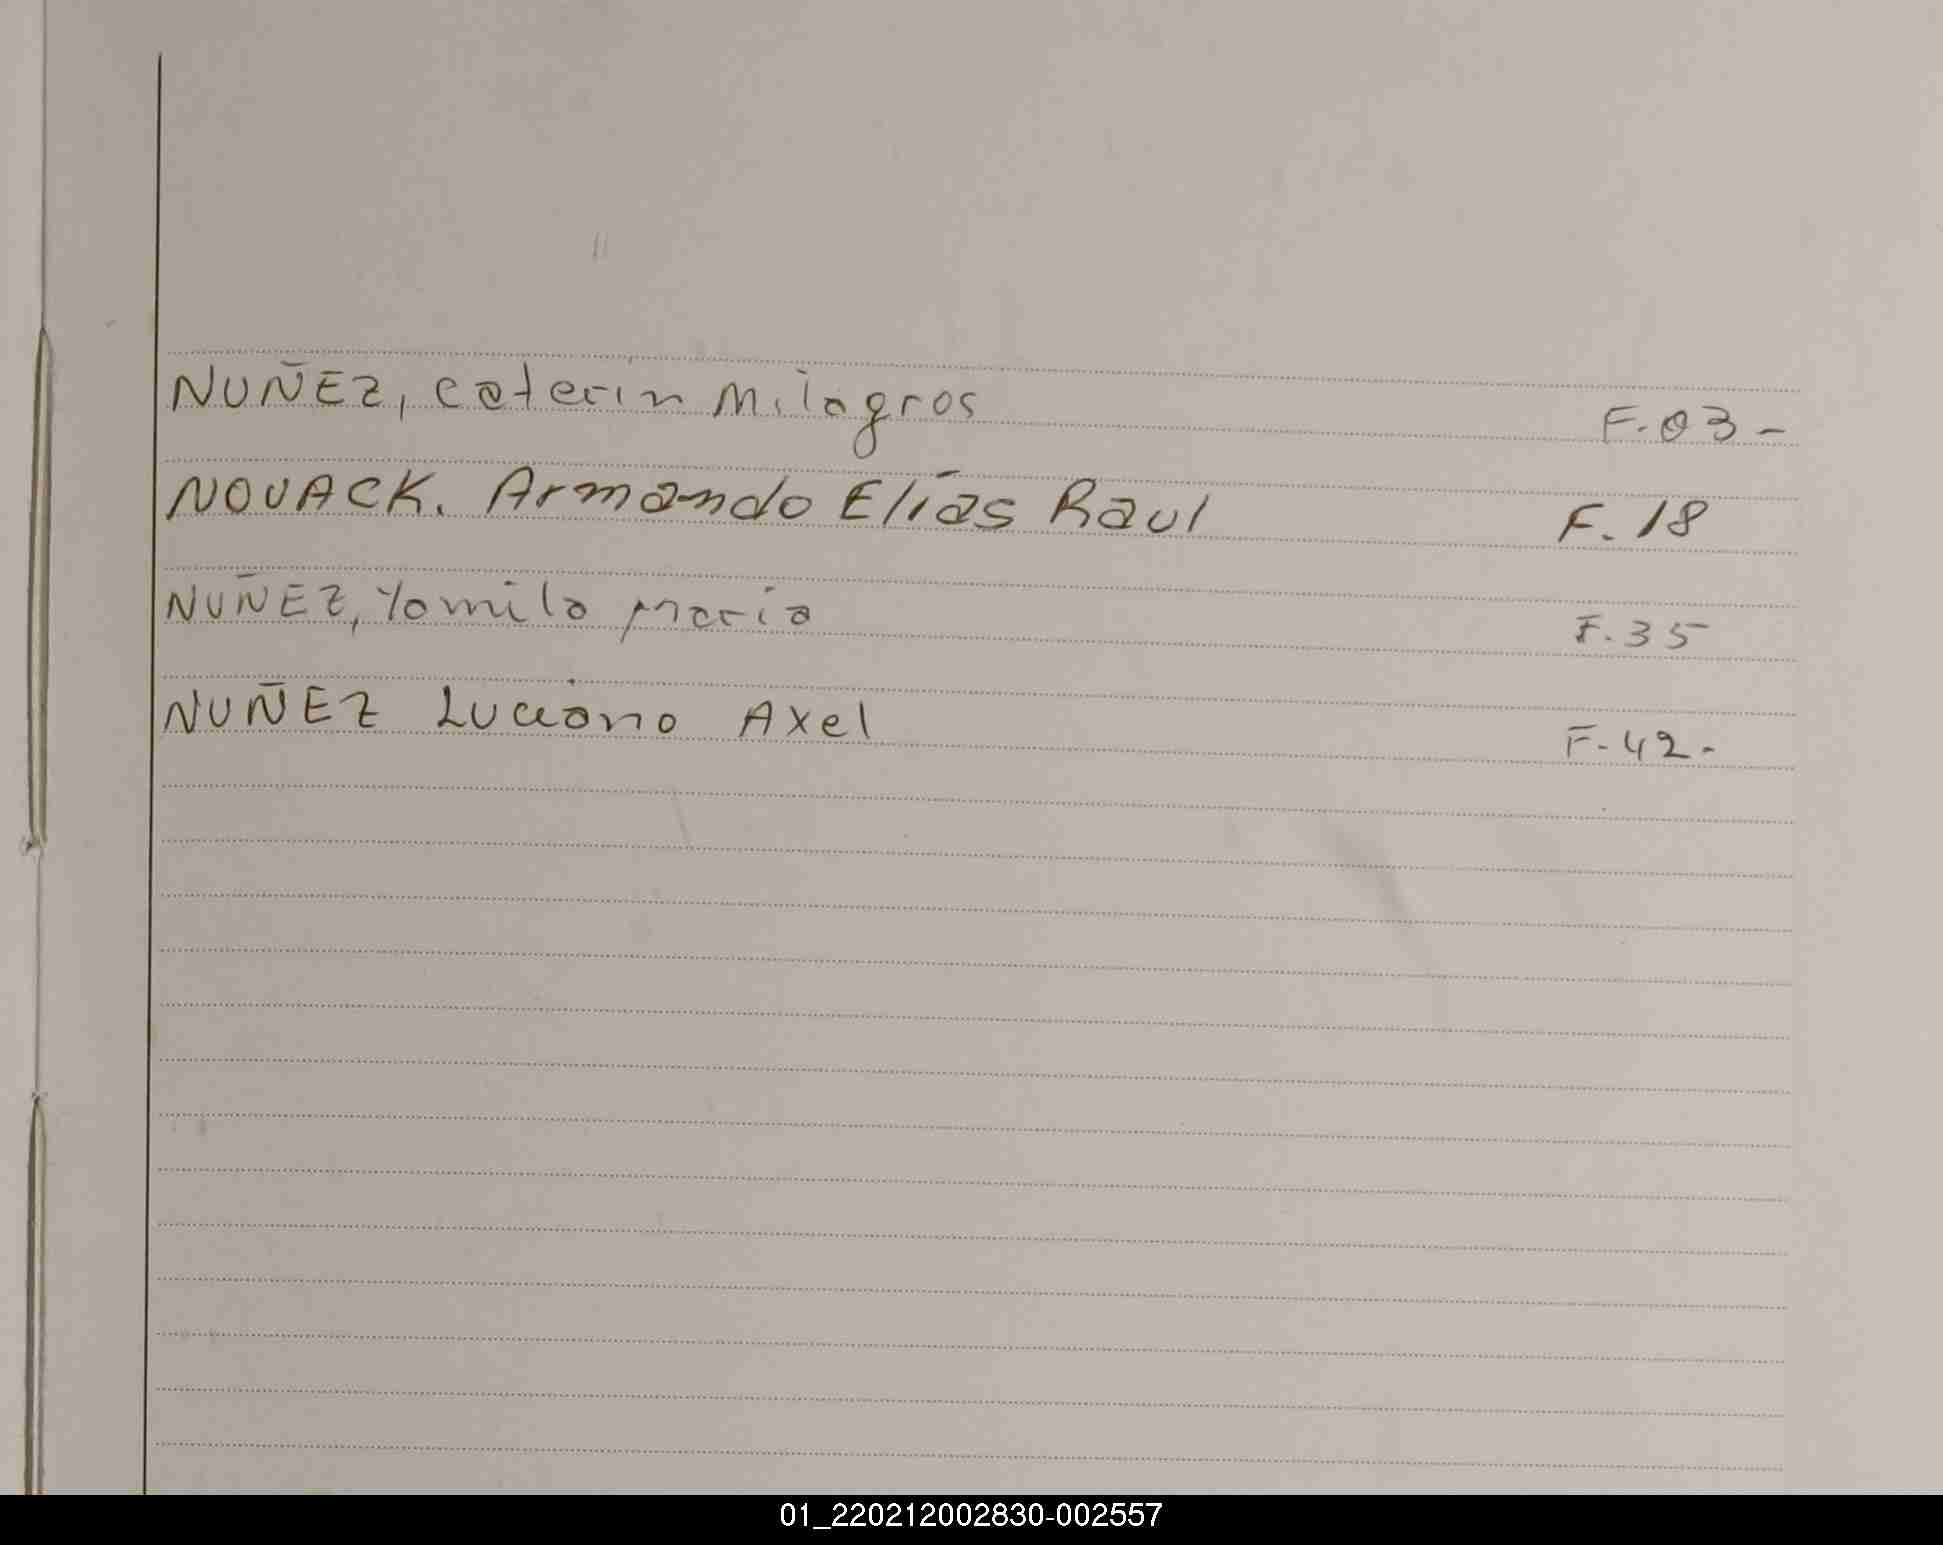 NUÑEZ, Caterin Milagros F.03-
NOVACK. Armando Elías Raul F. 18
NUÑEZ, Yamila Maria F.35
NUÑEZ Luciano Axel F-42-
01_220212002830-002557